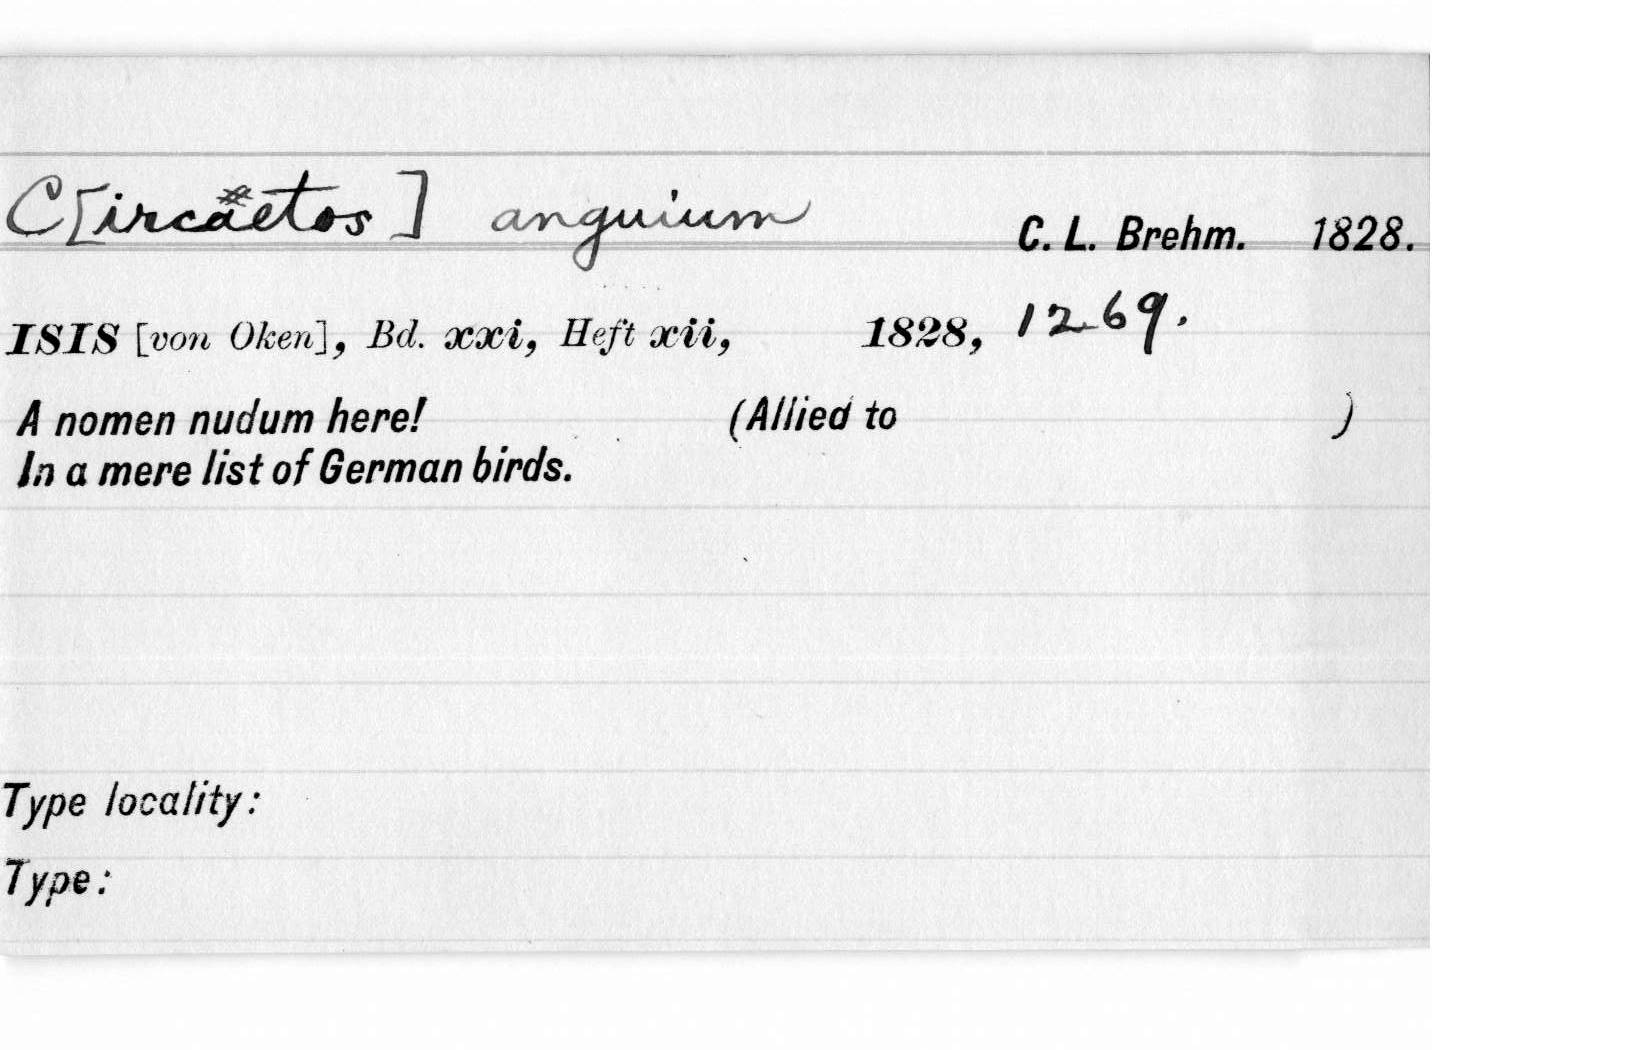 C[ircaetos] anguium C. L. Brehm. 1828.
ISIS [von Oken], Bd. xxi, Heft xii, 1828, 1269.
A nomen nudum here! (Allied to )
In a mere list of German birds.
Type locality:
Type: